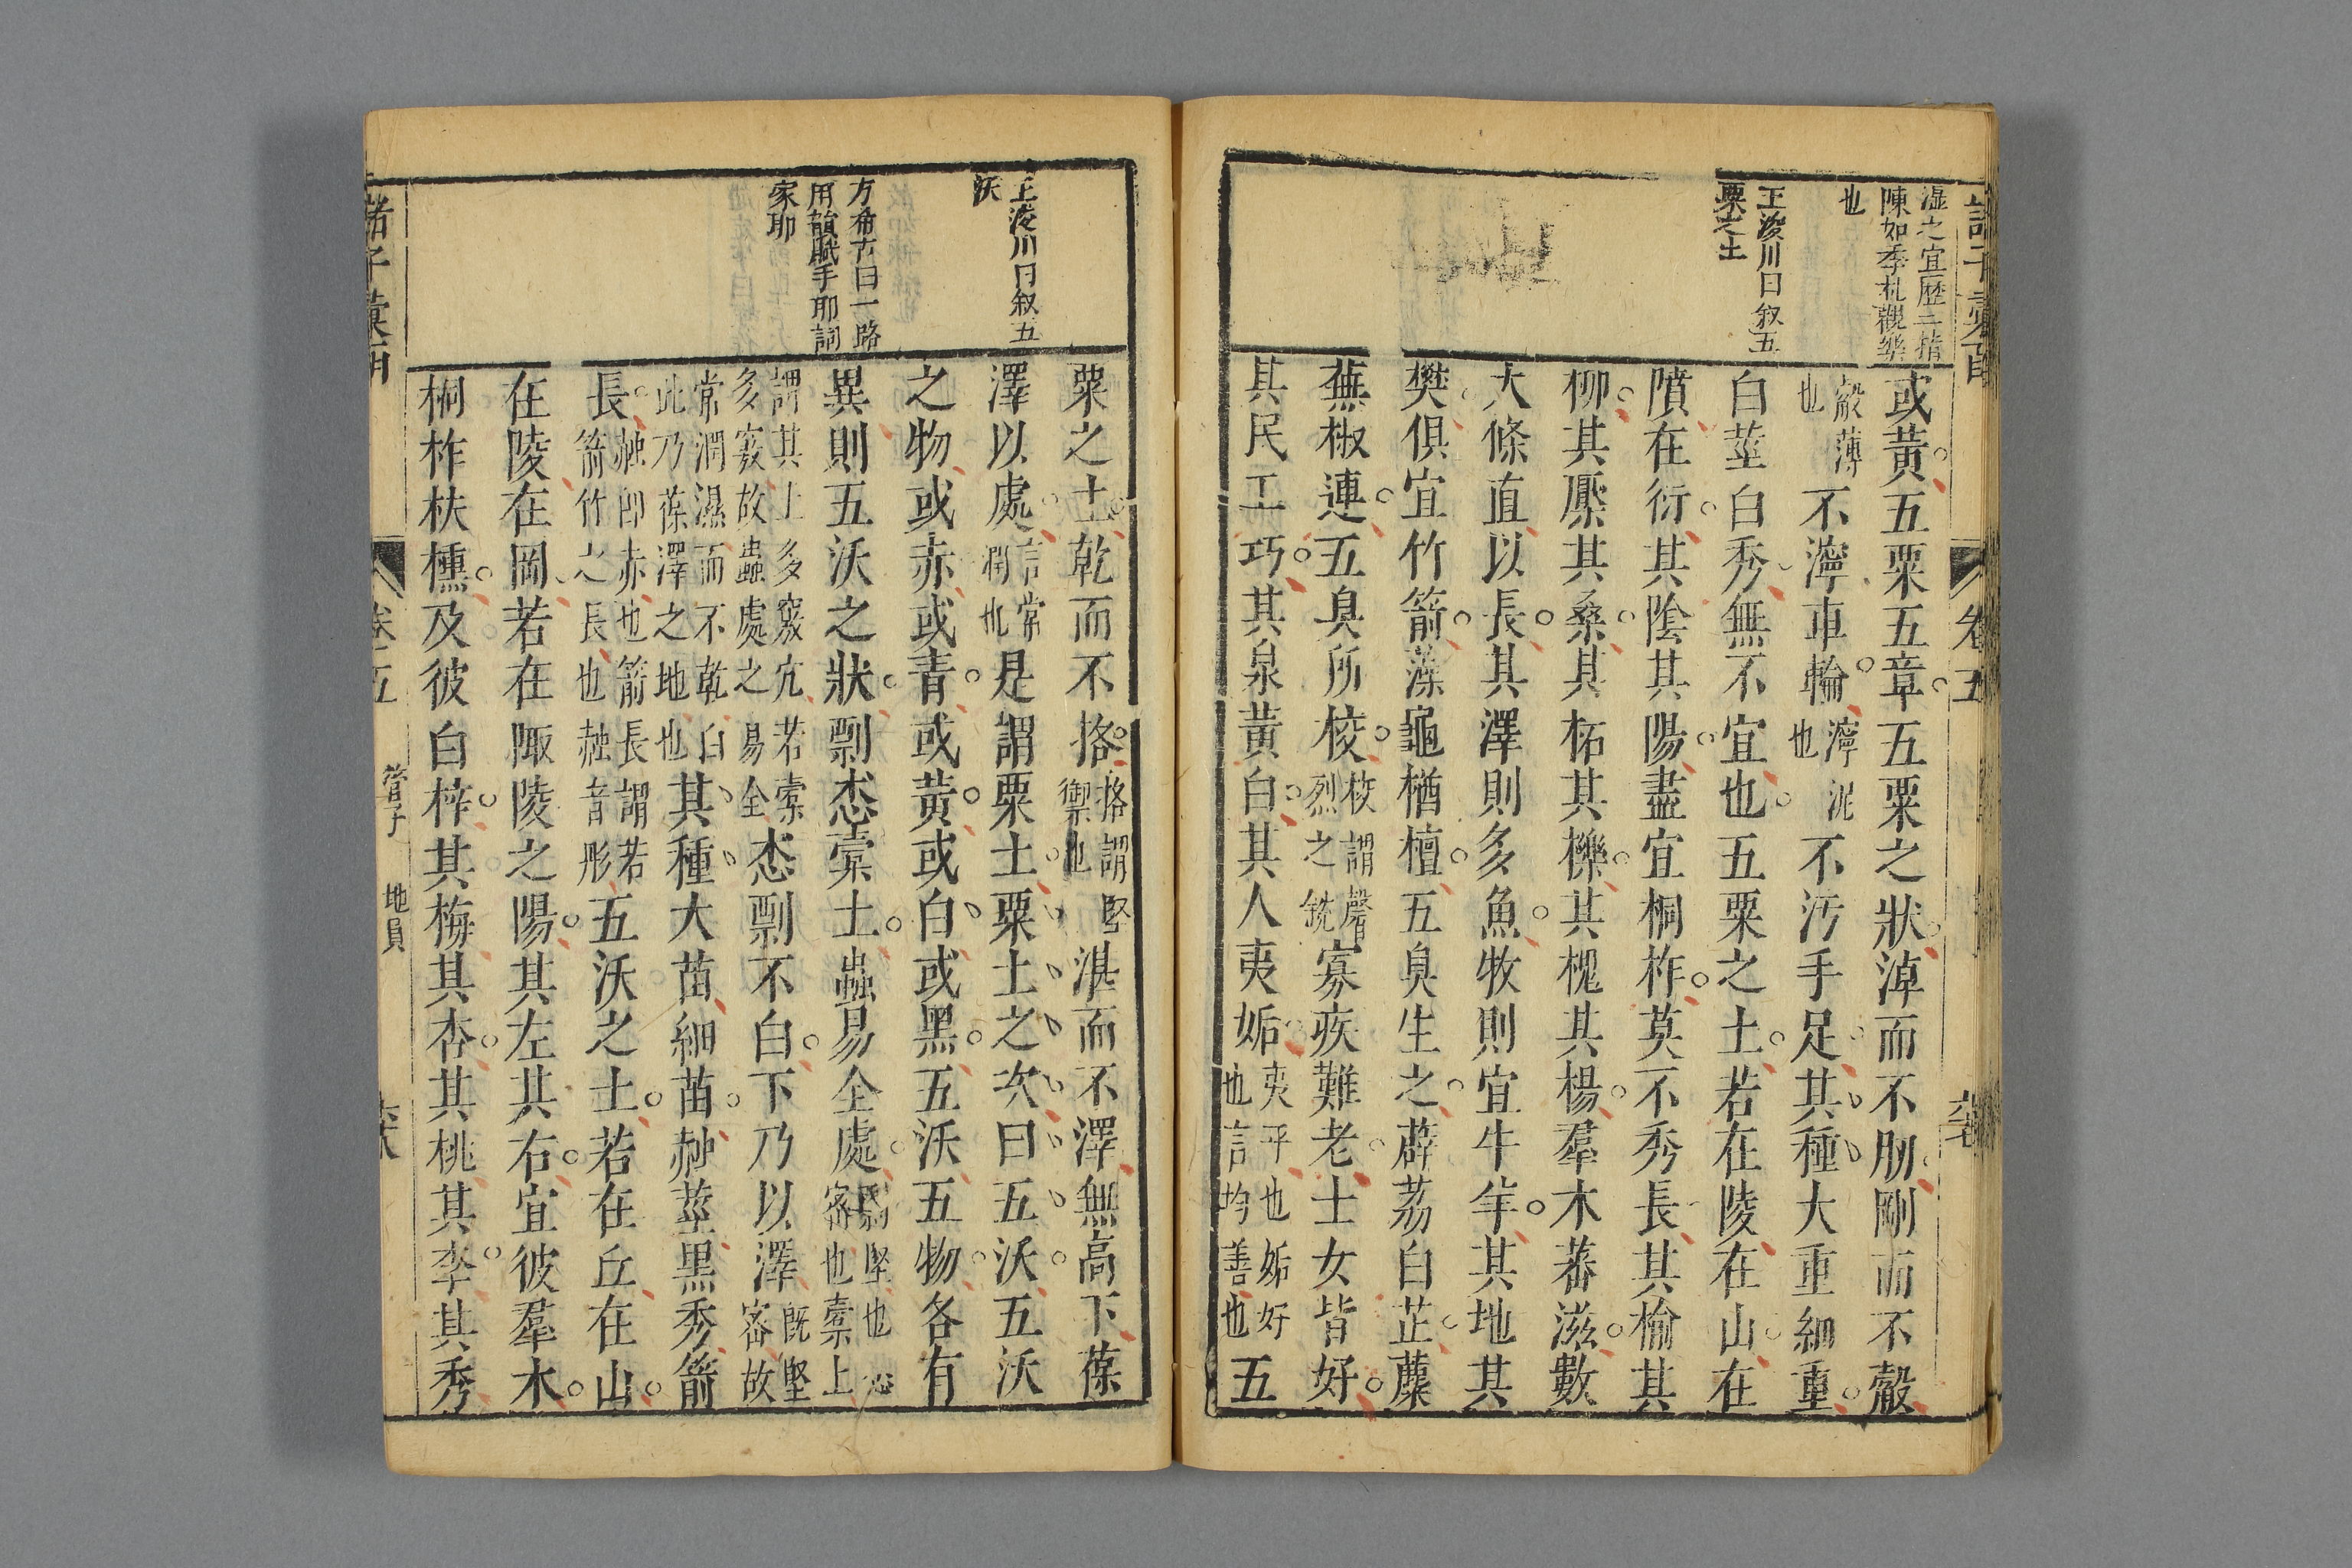 濕之宜歷二指
陳如季札觀樂
也
王浚川曰叙五
粟之土
或黃五粟五章五粟之狀淖而不肕剛而不觳
觳薄
也
不濘車輪
濘泥
也
不汚手足其種大重細重
白莖白秀無不宜也五粟之土若在陵在山在
隫在衍其陰其陽盡宜桐柞莫不秀長其榆其
柳其檿其桑其柘其櫟其槐其楊羣木蕃滋數
大條直以長其澤則多魚牧則宜牛羊其地其
樊俱宜竹箭藻龜楢檀五臭生之薜荔白芷蘪
蕪椒連五臭所校
校謂馨
烈之銑
寡疾難老士女皆好
其民工巧其泉黃白其人夷姤
夷平也姤好
也言均善也
五
卷五
王浚川曰叙五
沃
方希古曰一路
用韻賦手耶詞
家耶
粟之土乾而不挌
挌謂堅
禦也
湛而不澤無高下葆
澤以處
言常
潤也
是謂粟土粟土之次曰五沃五沃
之物或赤或青或黃或白或黑五沃五物各有
異則五沃之狀剽怸橐土蟲易全處
剽堅也怸
密也橐土
謂其土多竅穴若橐
多竅故蟲處之易全
怸剽不白下乃以澤
既堅
密故
常潤濕而不乾白
此乃葆澤之地也
其種大苗細苗赨莖黑秀箭
長
赨卽赤也箭長謂若
箭竹之長也赨音彤
五沃之土若在丘在山
在陵在岡若在陬陵之陽其左其右宜彼羣木
桐柞枎櫄及彼白梓其梅其杏其桃其李其秀
卷五
管子
地員